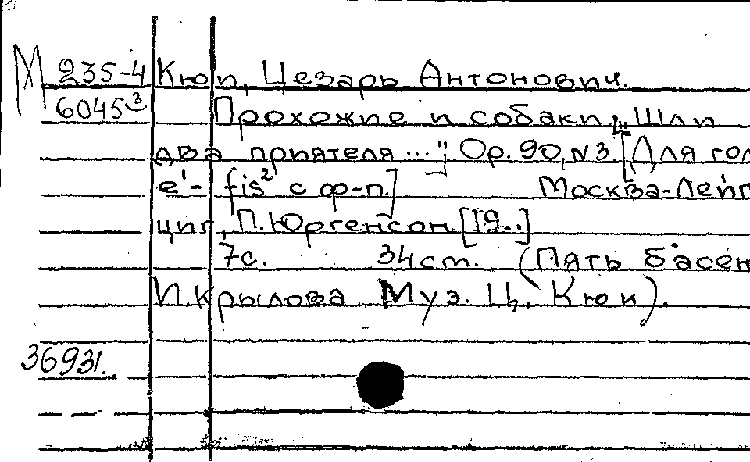 М 235-4 Кюи, Цезарь Антонович.
6045² Прохожие и собаки „Шли
два приятеля ..." Ор. 90, N 3. [Для гол
е¹- fis² с ф-п.] Москва-Лейп
циг, П. Юргенсон. [19..]
7с. 34 см. (Пять басен
И. Крылова Муз. Ц. Кюи).
36931.